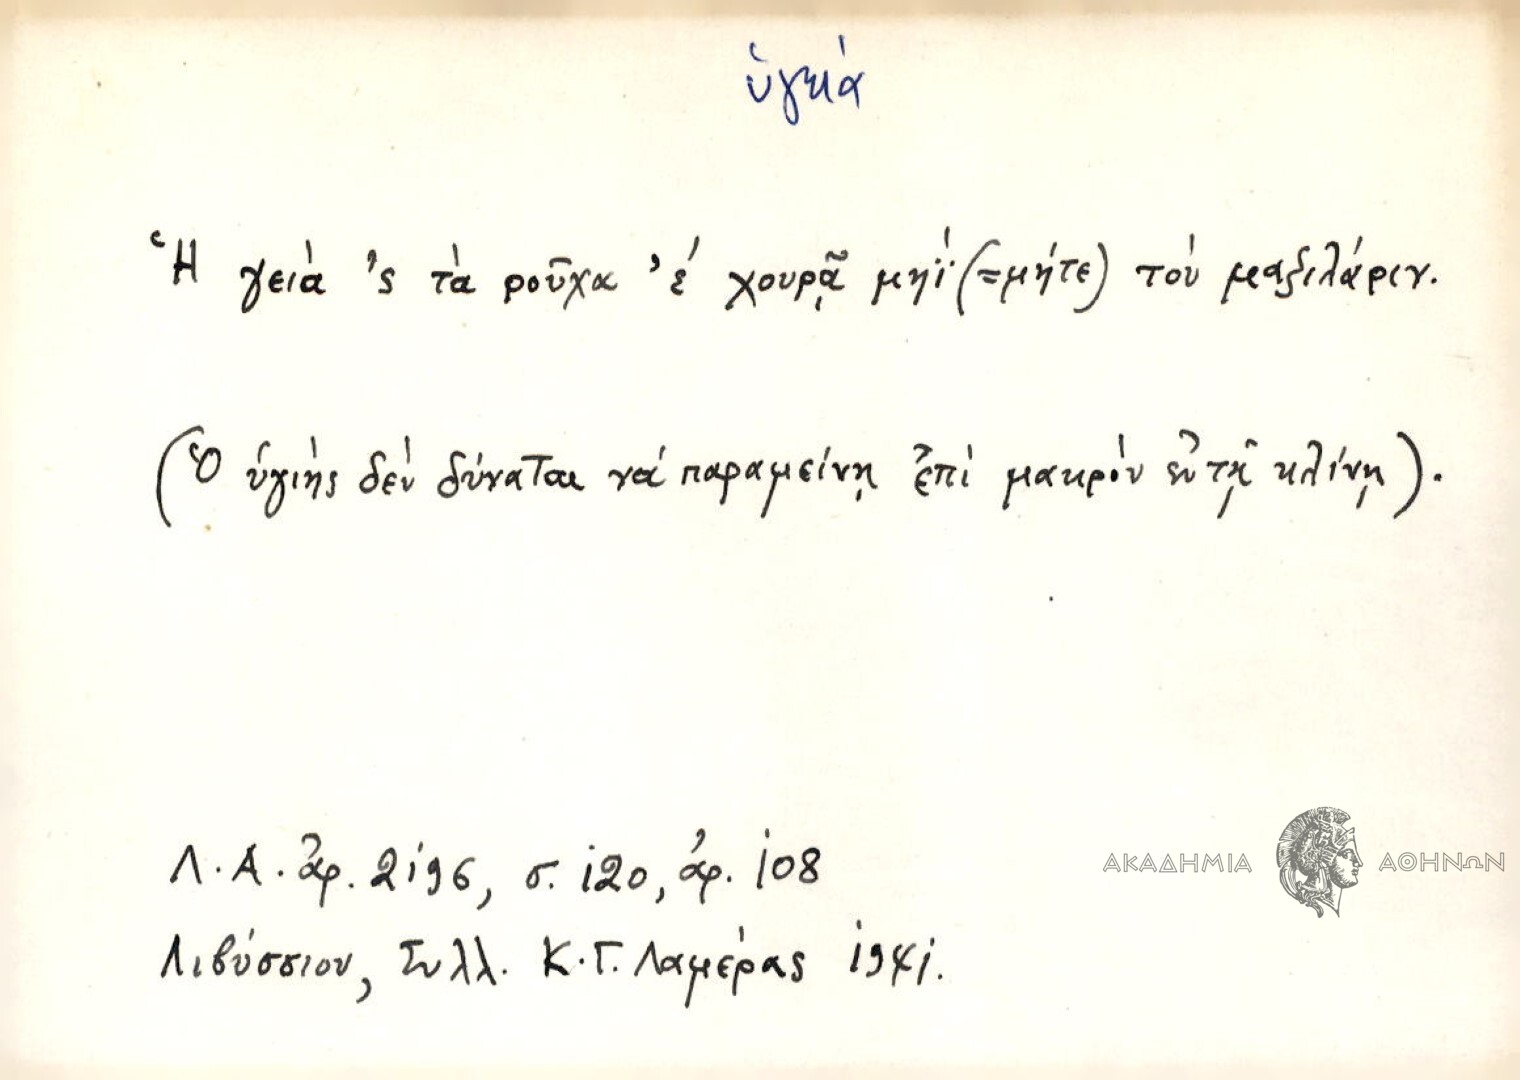 ὑγειά
Ἡ γειὰ 'ς τὰ ροῦχα 'ἐ χουρᾷ μηϊ (=μήτε) τοὺ μαξιλάριν.
(Ὁ ὑγιὴς δὲν δύναται νά παραμείνῃ ἐπὶ μακρὸν ἐν τῇ κλίνῃ).
Λ.Α. ἀρ. 2196, σ. 120, ἀρ. 108
Λιβύσσιον, Συλλ. Κ.Γ. Λαμέρας 1941.
ΑΚΑΔΗΜΙΑ ΑΘΗΝΩΝ